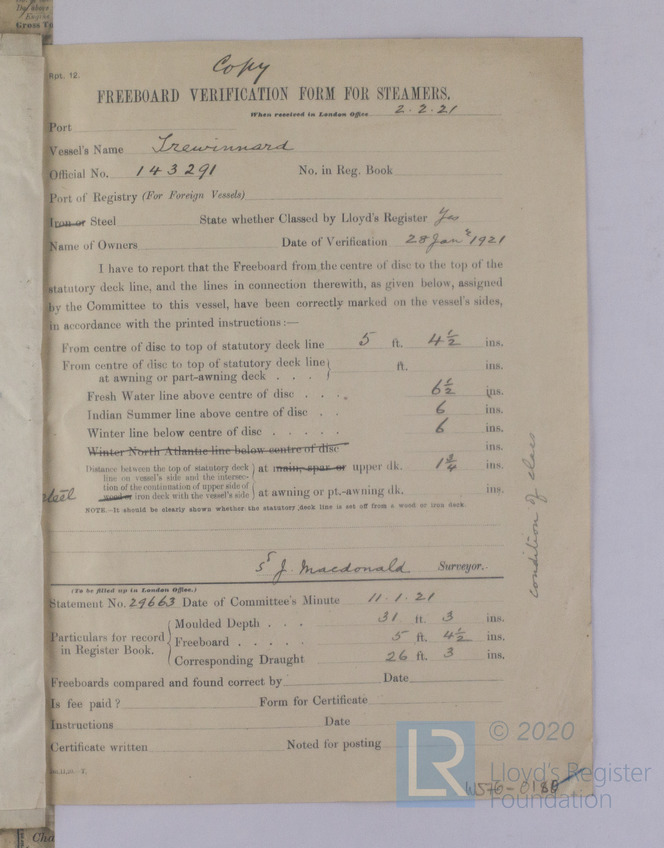 Rpt. 12.
Copy
FREEBOARD VERIFICATION FORM FOR STEAMERS.
When received in London Office 2.2.21
Port
Vessel's Name Trewinnard
Official No. 143291 No. in Reg. Book
Port of Registry (For Foreign Vessels)
Iron or Steel State whether Classed by Lloyd's Register Yes
Name of Owners Date of Verification 28 Jany 1921
I have to report that the Freeboard from the centre of disc to the top of the
statutory deck line, and the lines in connection therewith, as given below, assigned
by the Committee to this vessel, have been correctly marked on the vessel's sides,
in accordance with the printed instructions:—
From centre of disc to top of statutory deck line 5 ft. 4½ ins.
From centre of disc to top of statutory deck line
at awning or part-awning deck . . . ft. ins.
Fresh Water line above centre of disc . . . 6½ ins.
Indian Summer line above centre of disc . . 6 ins.
Winter line below centre of disc . . . . . 6 ins.
Winter North Atlantic line below centre of disc ins.
Distance between the top of statutory deck
line on vessel's side and the intersec-
tion of the continuation of upper side of
wood or iron deck with the vessel's side
steel
at main, spar or upper dk. 1¾ ins.
at awning or pt.-awning dk. ins.
NOTE.—It should be clearly shown whether the statutory deck line is set off from a wood or iron deck.
condition of class
J. Macdonald Surveyor.
(To be filled up in London Office.)
Statement No. 29663 Date of Committee's Minute 11.1.21
Particulars for record
in Register Book.
Moulded Depth . . . 31 ft. 3 ins.
Freeboard . . . . . 5 ft. 4½ ins.
Corresponding Draught 26 ft. 3 ins.
Freeboards compared and found correct by Date
Is fee paid? Form for Certificate
Instructions Date
Certificate written Noted for posting
LR
© 2020
Lloyd's Register
Foundation
W576-0188
Gross